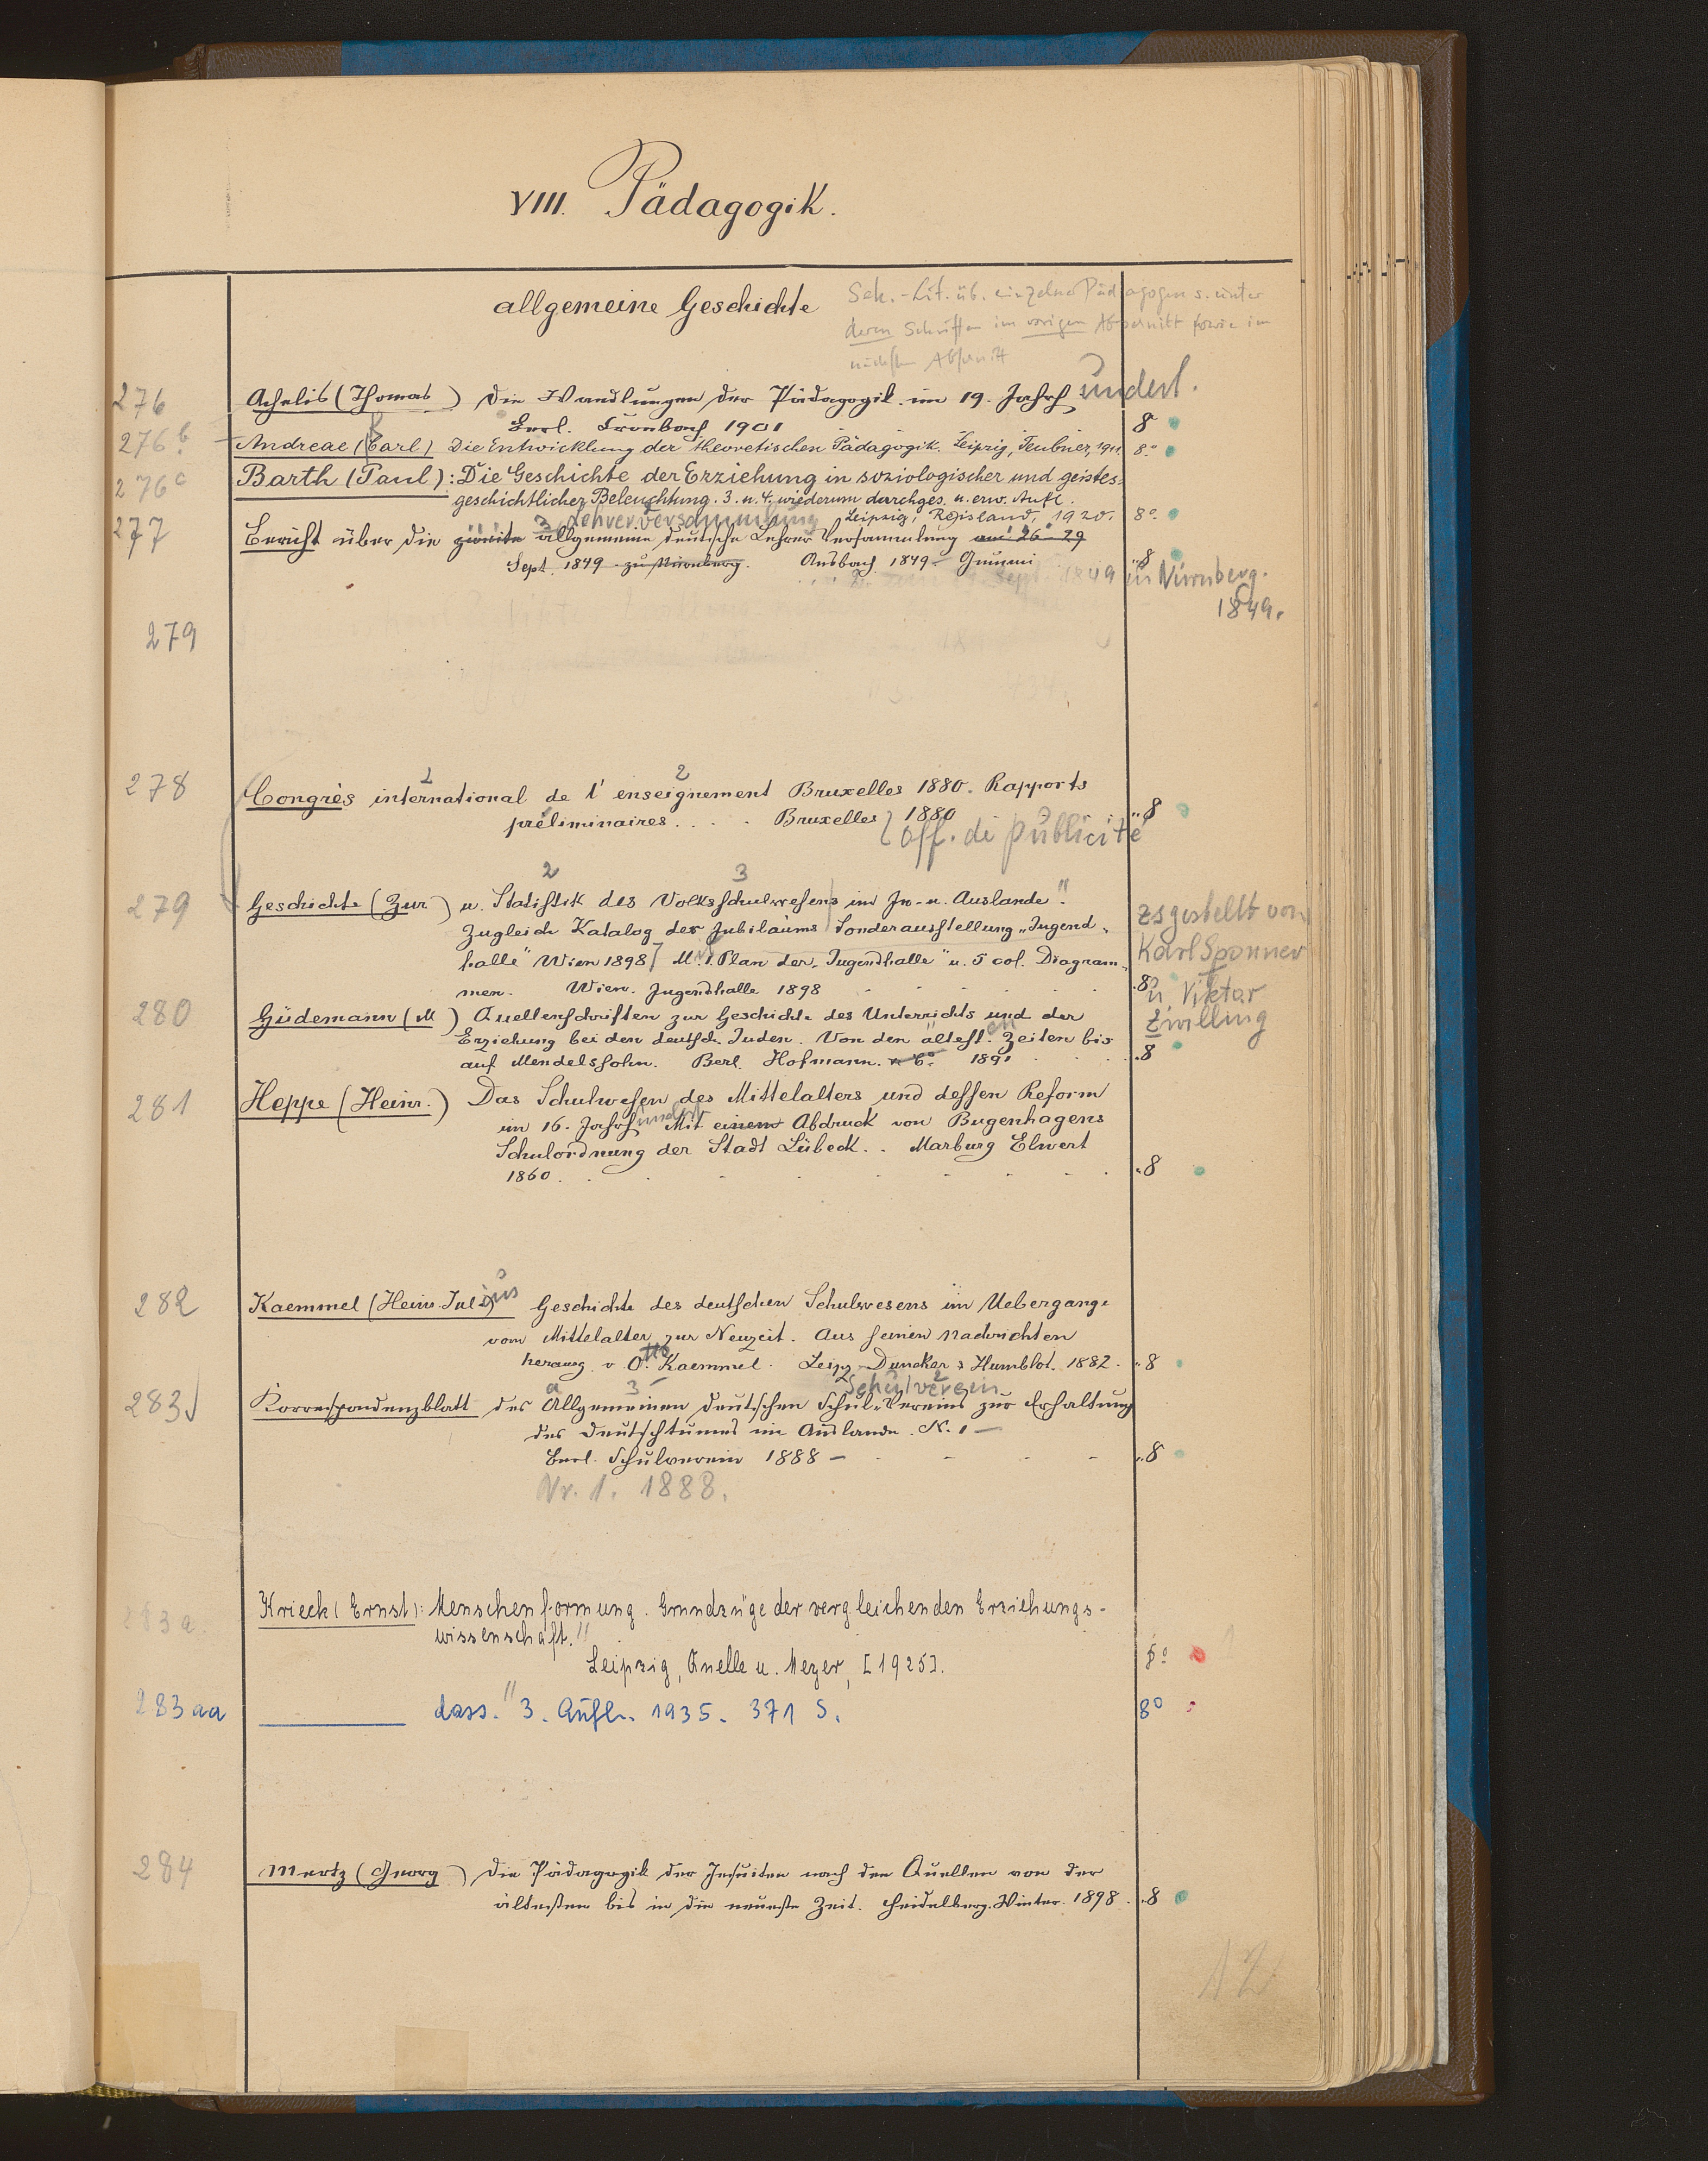 VIII. Pädagogik.
allgemeine Geschichte
Sek.-Lit. üb. einzelne Pädagogen s. unter
deren Schriften im vorigen Abschnitt sowie im
nächsten Abschnitt
276 Achelis (Thomas) Die Wandlungen der Pädagogik im 19. Jahrh undert.
Berl. Cronbach 1901 8
276b Andreae (Carl) Die Entwicklung der theoretischen Pädagogik. Leipzig, Teubner, 1911. 8.°
276c Barth (Paul): Die Geschichte der Erziehung in soziologischer und geistes-
geschichtlicher Beleuchtung. 3. u. 4. wiederum durchges. u. erw. Aufl.
Leipzig, Reisland, 1920. 8°.
3 Lehrerversammlung
277 Bericht über die zweite allgemeine deutsche Lehrer Versammlung am 26-29
Sept. 1849 zu Nürnberg. Ansbach 1849 Gummi 8
Sept. 1849 in Nürnberg.
1849.
279
1 2
278 Congrès international de l'enseignement Bruxelles 1880. Rapports
préliminaires . . . Bruxelles 1880 8
Off. de publicité
2 3
279 Geschichte (Zur) u. Statistik des Volksschulwesens im In- u. Auslande".
Zugleich Katalog der Jubiläums Sonderausstellung „Jugend-
halle" Wien 1898 M. 1. Plan der „Jugendhalle" u. 5 col. Diagram-
men. Wien. Jugendhalle 1898 8°
zsgestellt von
Karl Sponner
u. Viktor
Zwilling
280 Güdemann (M) Quellenschriften zur Geschichte des Unterrichts und der
Erziehung bei den deutsch. Juden. Von den ältest.en Zeiten bis
auf Mendelssohn. Berl. Hofmann. 1891 8
281 Heppe (Heinr.) Das Schulwesen des Mittelalters und dessen Reform
im 16. Jahrhundert Mit einem Abdruck von Bugenhagens
Schulordnung der Stadt Lübeck. . Marburg Elwert
1860 . 8
282 Kaemmel (Heinr. Julius) Geschichte des deutschen Schulwesens im Uebergange
vom Mittelalter zur Neuzeit. Aus seinen Nachrichten
herausg. v O.tto Kaemmel. Leipz Duncker & Humblot. 1882. 8
a 3 Schulverein 2
283 Korrespondenzblatt des Allgemeinen deutschen Schul-Vereins zur Erhaltung
des Deutschtumes im Auslande. N. 1 —
Berl. Schulverein 1888 — 8
Nr. 1. 1888.
283a. Krieck (Ernst): Menschenformung. Grundzüge der vergleichenden Erziehungs-
wissenschaft."
Leipzig, Quelle u. Meyer, [1925]. 8°
283aa dass." 3. Aufl. 1935. 371 S. 8°
284 Mertz (Georg) Die Pädagogik der Jesuiten nach den Quellen von der
ältesten bis in die neueste Zeit. Heidelberg. Winter. 1898. 8
12